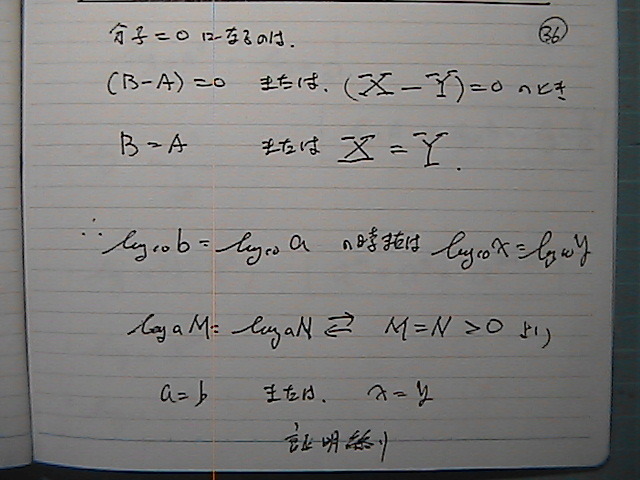 36
分子=0になるのは.
(B-A)=0 または. (X-Y)=0 のとき
B=A または X=Y.
∴ log₁₀b = log₁₀a の時または log₁₀x = log₁₀y
logaM = logaN ⇄ M=N>0 より
a=b または. x=y
証明終り